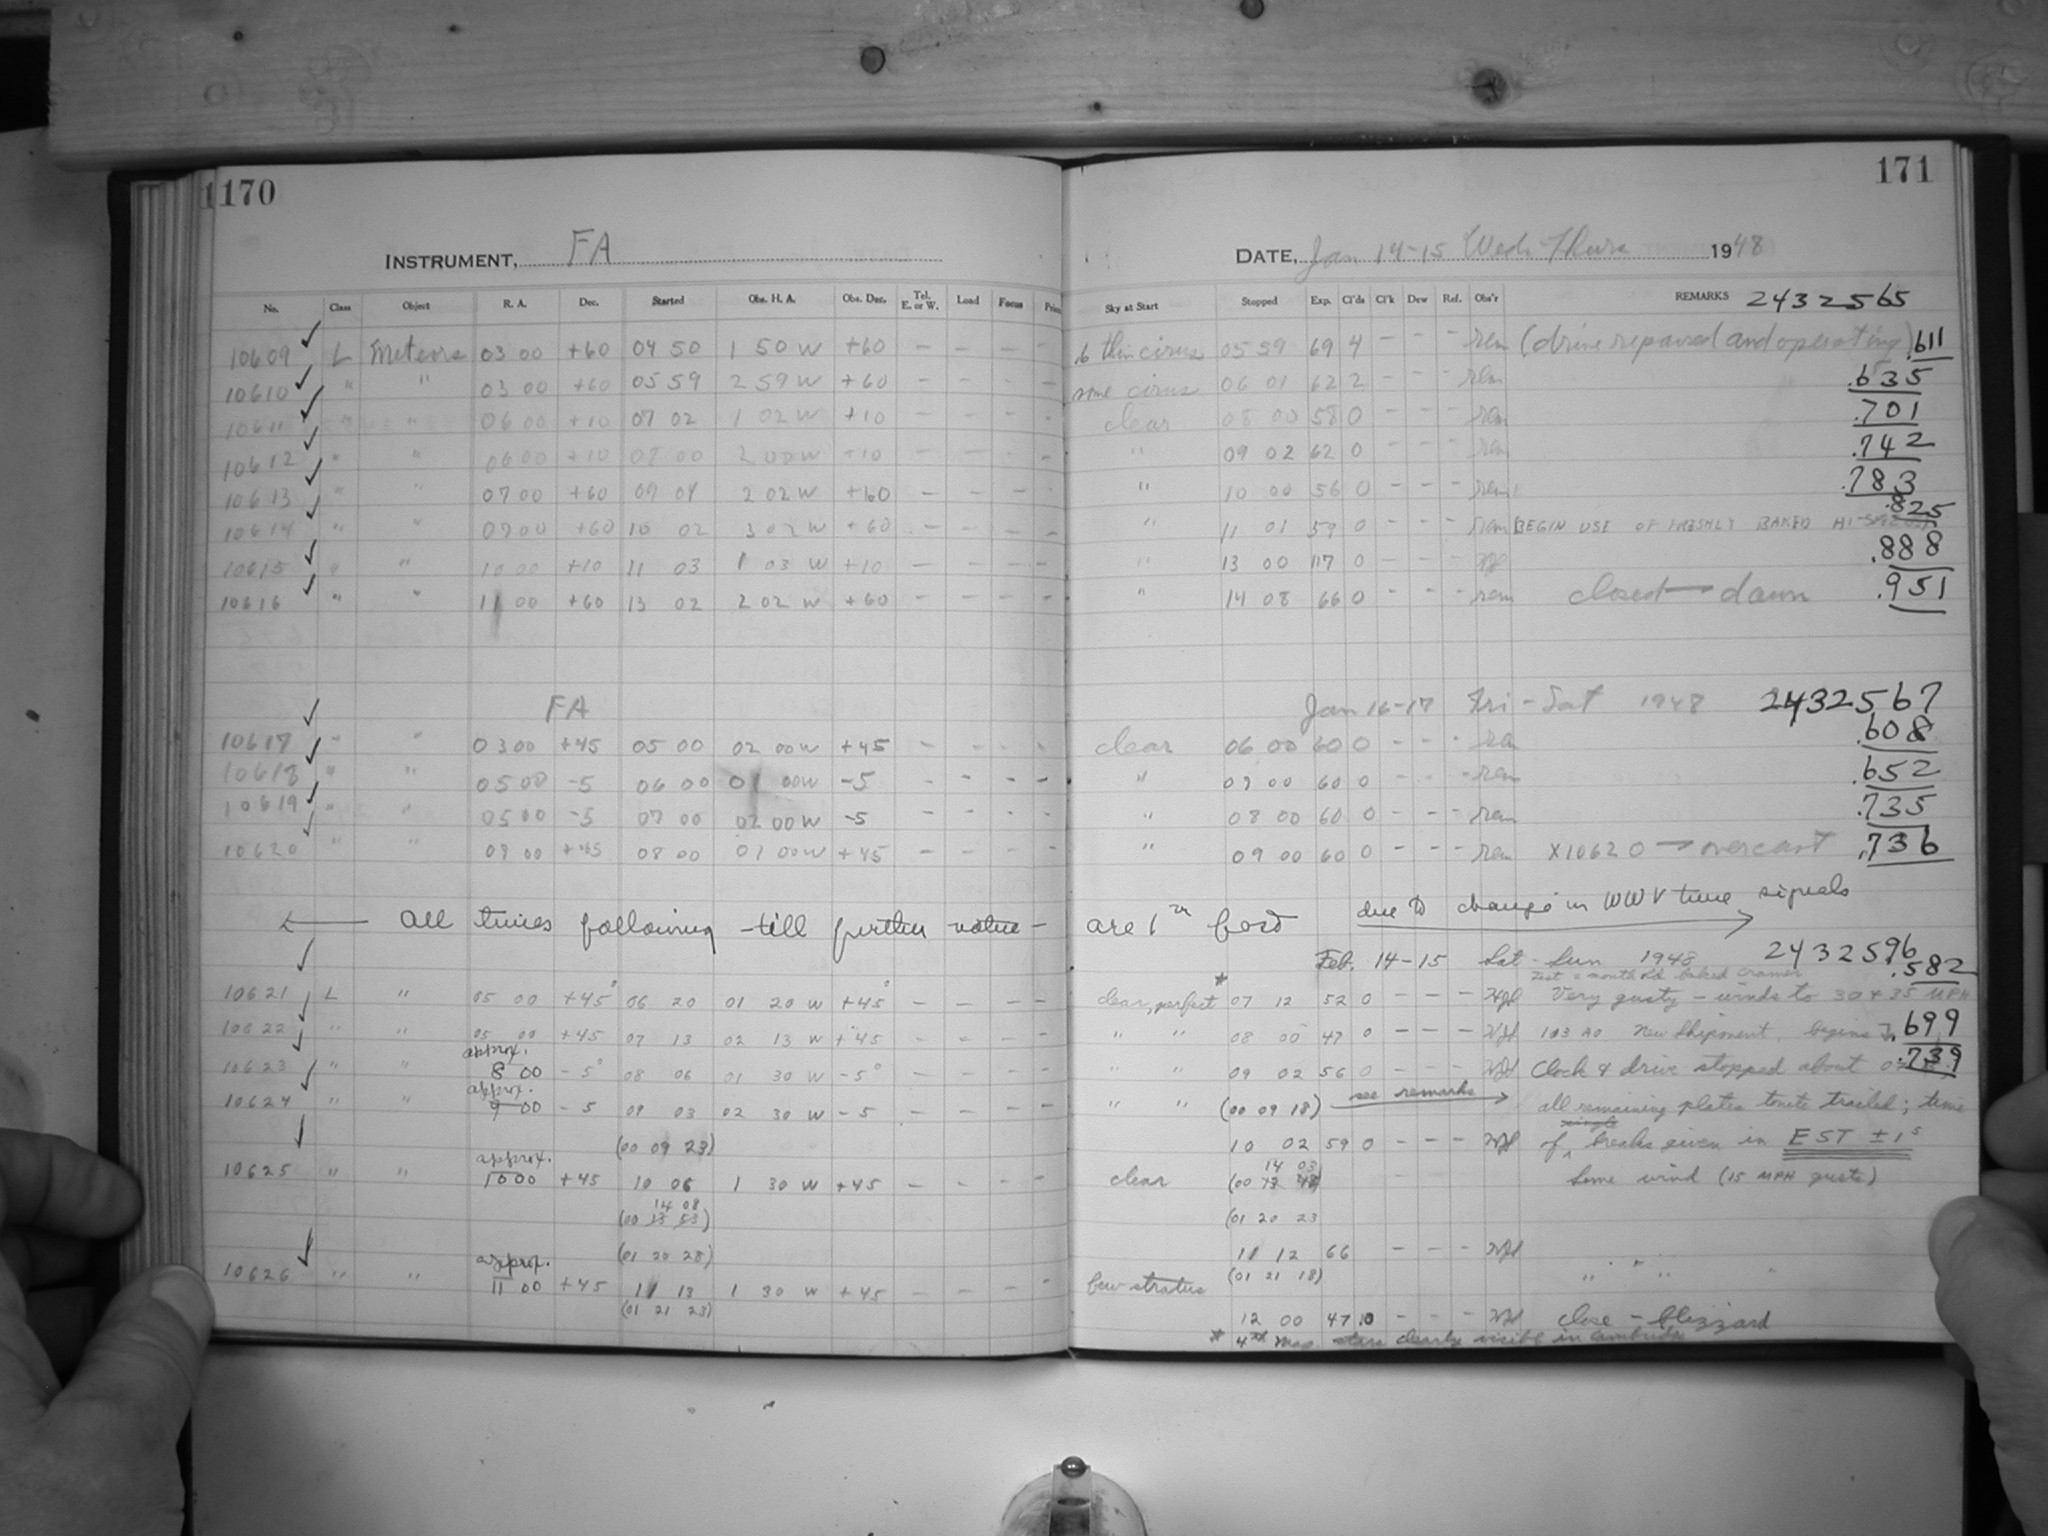 170
171
INSTRUMENT, FA
DATE, Jan 14-15 Wed-Thurs 1948
No. Class Object R. A. Dec. Started Obs. H. A. Obs. Dec. Tel. E. or W. Load Focus Sky at Start Stopped Exp. Cl'ds Cl'k Dew Ref. Obs'r REMARKS 2432565
10609 L Meteors 03 00 +60 04 50 1 50 W +60 - - - - thin cirrus 05 59 69 4 - - - rem (drive repaired and operating) .611
10610 " " 03 00 +60 05 59 2 59 W +60 - - - - some cirus 06 01 62 2 - - - rem .635
10611 " " 06 00 +10 07 02 1 02 W +10 - - - - clear 08 00 58 0 - - - rem .701
10612 " " 06 00 +10 08 00 2 00 W +10 - - - - " 09 02 62 0 - - - rem .742
10613 " " 07 00 +60 09 04 2 02 W +60 - - - - " 10 00 56 0 - - - rem .783
10614 " " 07 00 +60 10 02 3 02 W +60 - - - - " 11 01 59 0 - - - rem BEGIN USE OF FRESHLY BAKED .825
10615 " " 10 00 +10 11 03 1 03 W +10 - - - - " 13 00 117 0 - - - .888
10616 " " 11 00 +60 13 02 2 02 W +60 - - - - " 14 08 66 0 - - - rem closed — dawn .951
FA Jan 16-17 Fri - Sat 1948 2432567
10617 " " 03 00 +45 05 00 02 00 W +45 - - - - clear 06 00 60 0 - - - .608
10618 " " 05 00 -5 06 00 01 00 W -5 - - - - " 07 00 60 0 - - - rem .652
10619 " " 05 00 -5 07 00 02 00 W -5 - - - - " 08 00 60 0 - - - rem .735
10620 " " 07 00 +45 08 00 01 00 W +45 - - - - " 09 00 60 0 - - - rem X10620 → overcast .736
← All times following till further notice are 1 m fast due to change in WWV time signals →
Feb. 14-15 Sat - Sun 1948 2432596
Test = month old baked Cramer .582
10621 L " 05 00 +45° 06 20 01 20 W +45° - - - - clear, perfect * 07 12 52 0 - - - Very gusty - winds to 30+35 MPH
10622 " " 05 00 +45 07 13 02 13 W +45 - - - - " " 08 00 47 0 - - - 103 A0 New Shipment begins .699
approx.
10623 " " 8 00 -5° 08 06 01 30 W -5° - - - - " " 09 02 56 0 - - - Clock & drive stopped about .739
approx.
10624 " " 9 00 -5 09 03 02 30 W -5 - - - - " " (00 09 18) see remarks → all remaining plates tonite trailed; time
(00 09 23) 10 02 59 0 - - - of single breaks given in EST ±1s
approx. 14 03
10625 " " 10 00 +45 10 06 1 30 W +45 - - - - clear (00 13 48) Some wind (15 MPH gusts)
14 08
(00 13 53) (01 20 23
(01 20 28) 11 12 66 - - -
approx.
10626 " " 11 00 +45 11 13 1 30 W +45 - - - - few stratus (01 21 18) " " " "
(01 21 23) 12 00 47 10 - - - close - blizzard
* 4th mag. stars clearly visible in Cambridge